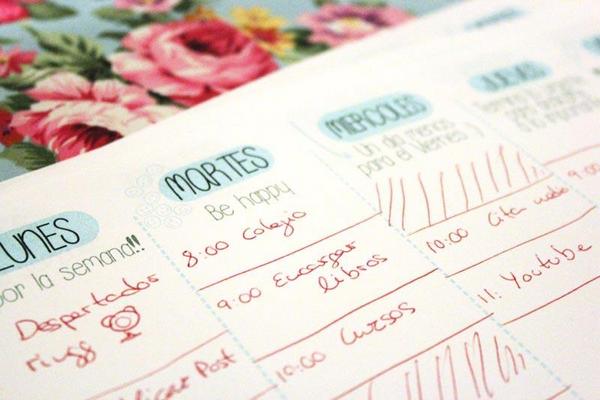 LUNES
por la semana!!
Despertador
riiiggg
Publicar Post
MARTES
Be happy
8:00 Colegio
9:00 Encargar
libros
10:00 Cursos
MIERCOLES
Un dia menos
para el viernes )
10:00 Cita
11: Youtube
JUEVES
9:00